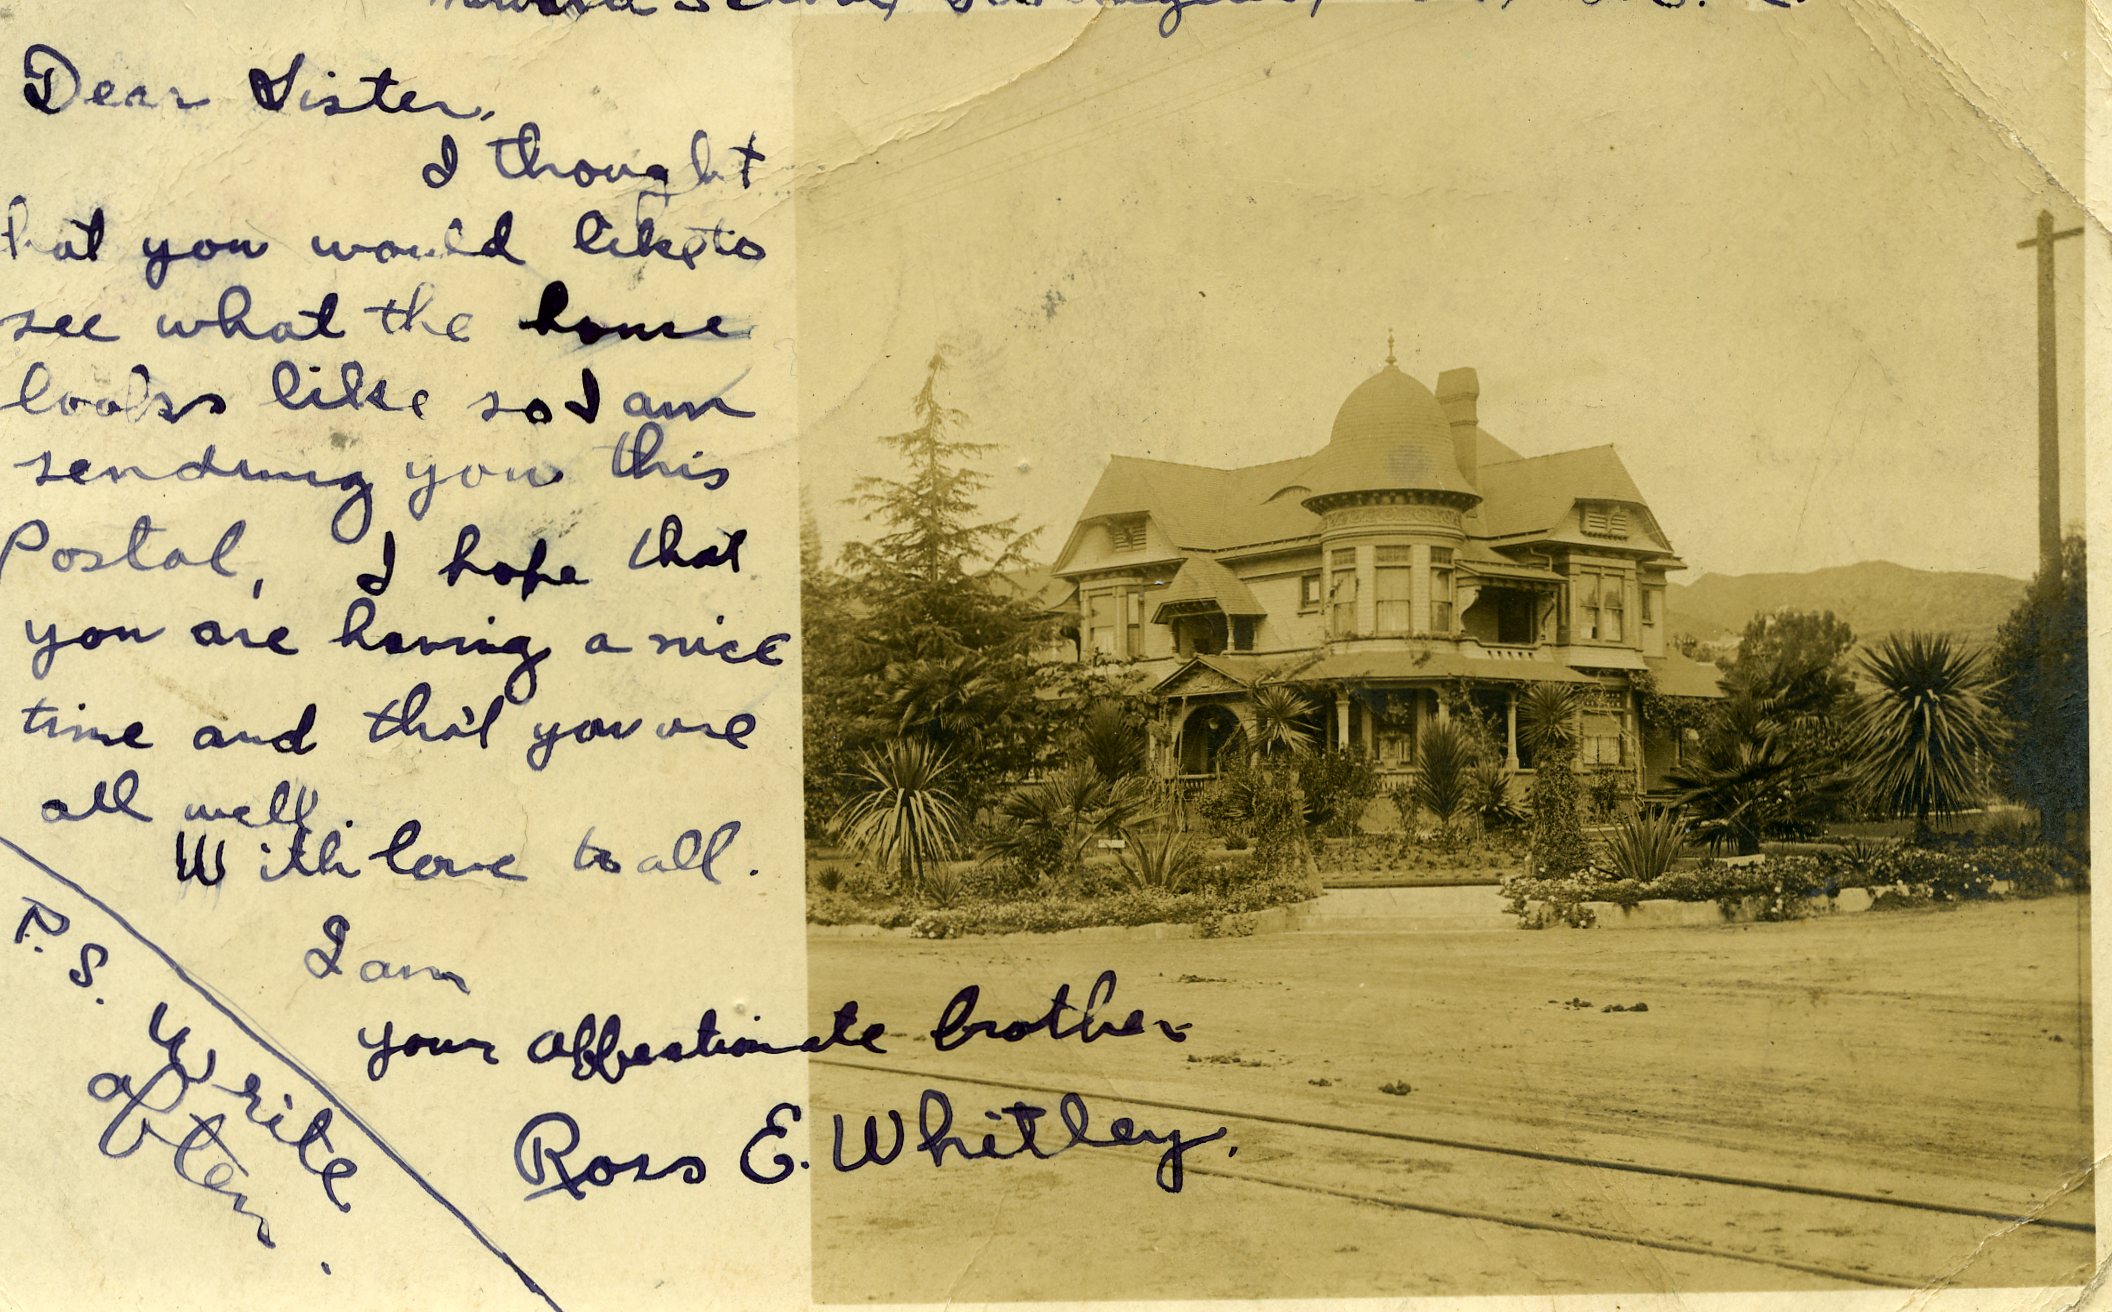 Dear Sister,
I thought
that you would like to
see what the home
looks like so I am
sending you this
Postal, I hope that
you are having a nice
time and that you are
all well.
With love to all.
I am
your affectionate brother
Ross E. Whitley.
P.S. Write
often.